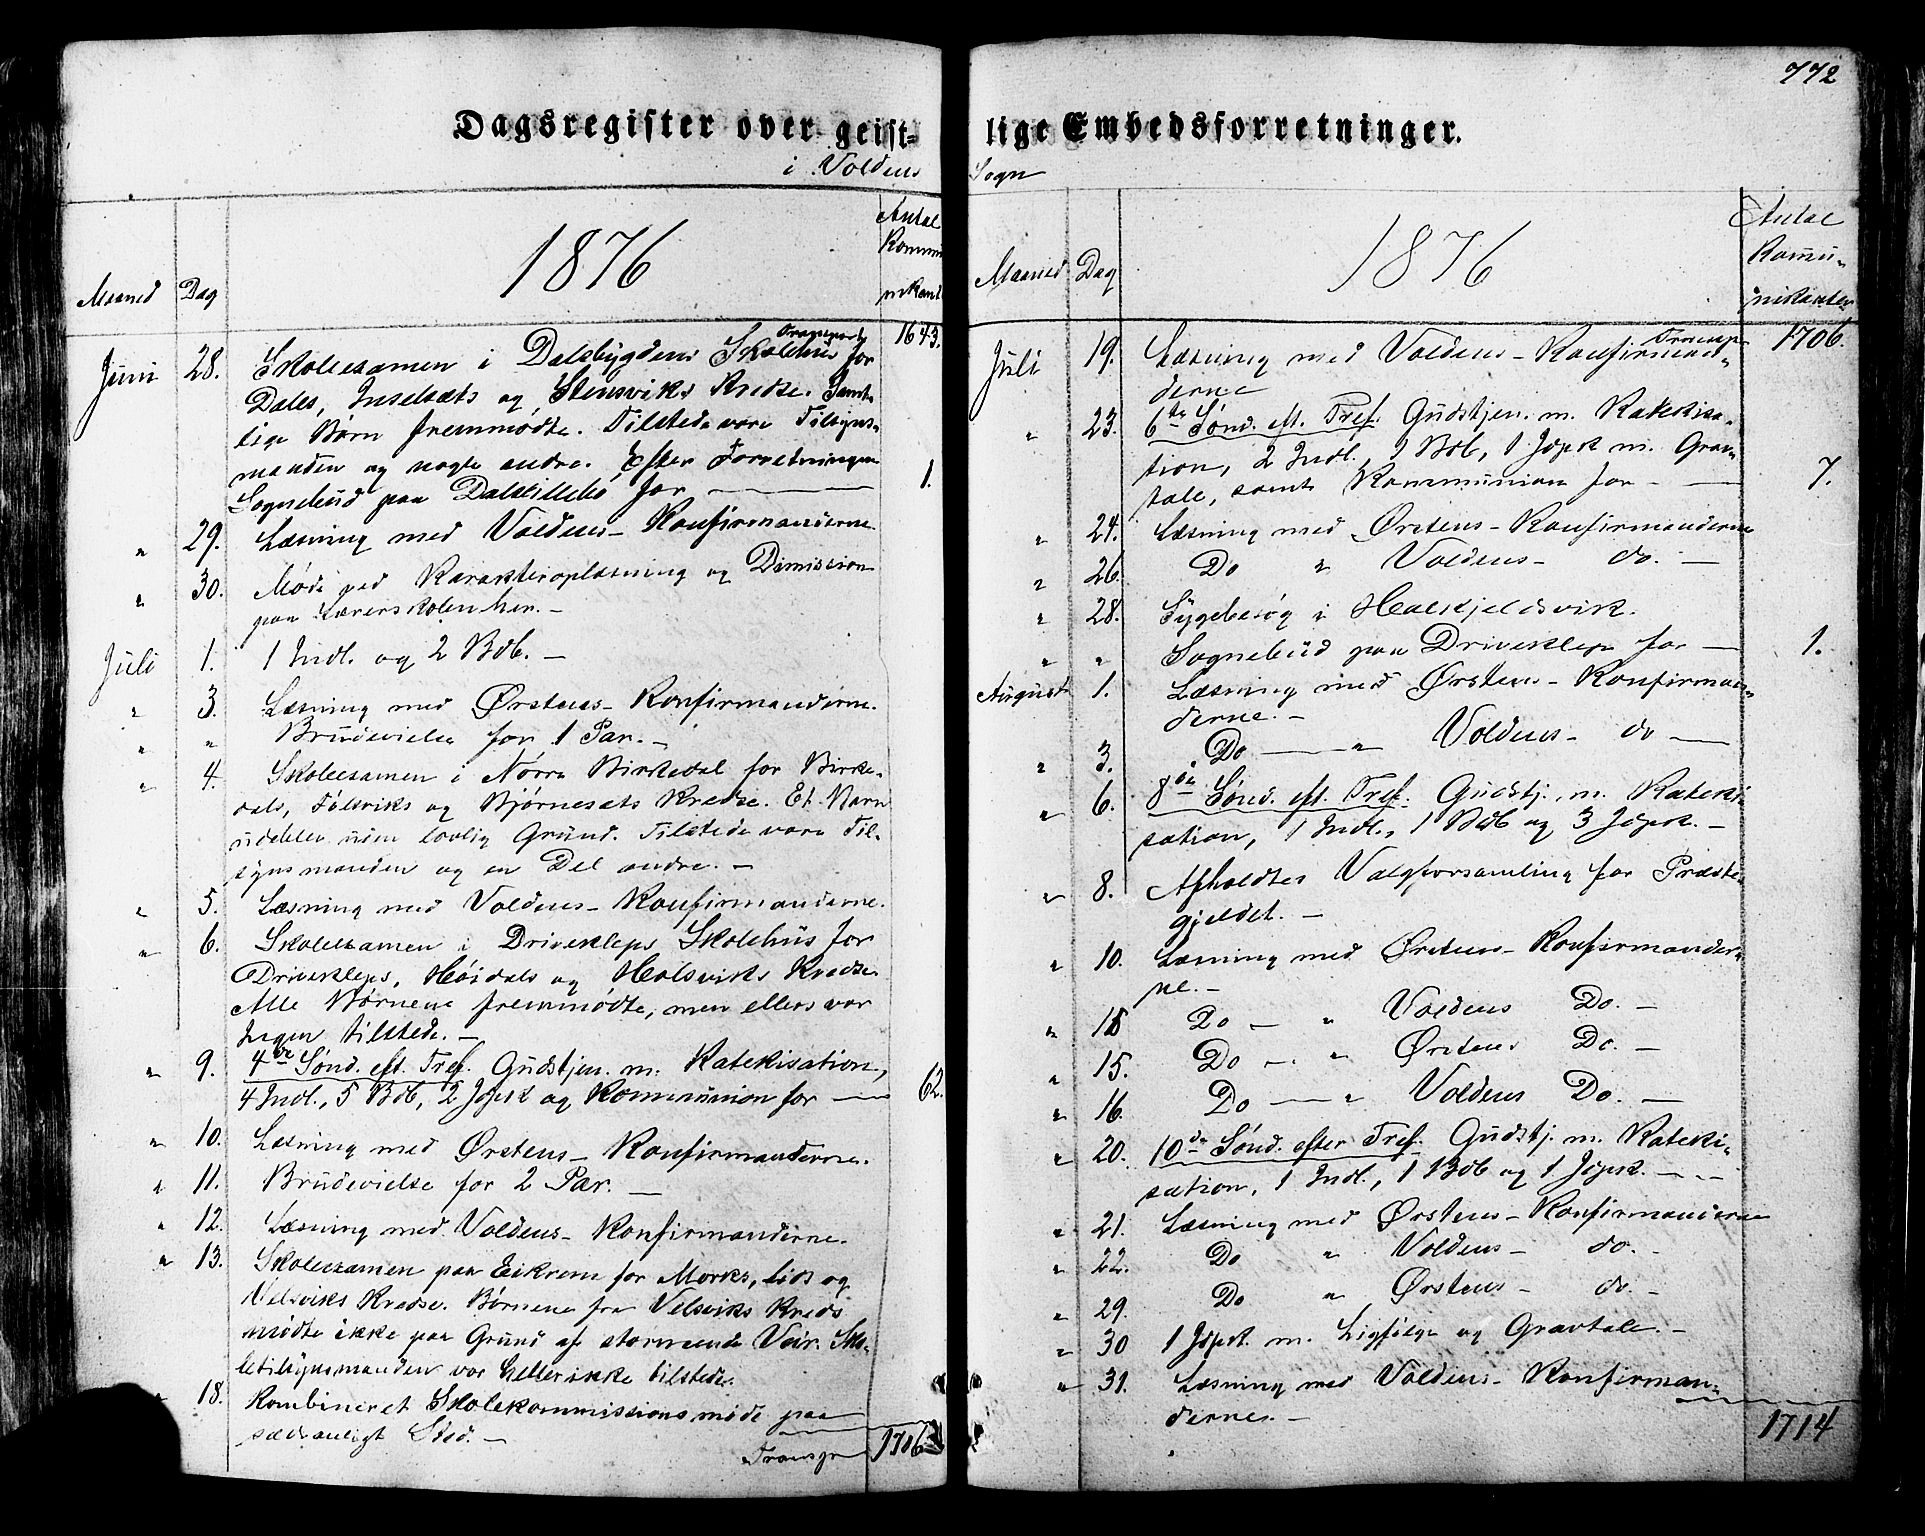 772
Dagsregister over geist-
i Voldens
1876
Maaned Dag
Antal
Kommu
nikant
Transport 1643.
Juni 28. Skoleexamen i Dalsbygdens Skolehus for
Dales, Inselsæts og Stensviks Kredse. Samt-
lige Børn fremmødte. Tilstede vare Tilsyns-
manden og nogle andre. Efter Forretningen
Sognebud paa Dalstillebø for — 1.
" 29. Læsning med Voldens- Konfirmanderne
" 30. Møde ved Karakteroplæsning og Dimission
paa Lærerskolen her. —
Juli 1. 1 Indl. og 2 Bdb. —
" 3. Læsning med Ørstens- Konfirmanderne.
" " Brudevielse for 1 Par. —
" 4. Skoleexamen i Nørre Birkedal for Birke-
dals, Følsviks og Bjørnesæts Kredse. Et Barn
udeblev uden lovlig Grund. Tilstede vare Til-
synsmanden og en Del andre. —
" 5. Læsning med Voldens- Konfirmanderne.
" 6. Skoleexamen i Drivekleps Skolehus for
Drivekleps, Høidals og Halsviks Kredse
Alle Børnene fremmødte, men ellers var
Ingen tilstede. —
" 9. 4de Sønd. eft. Tref. Gudstjen. m. Katekisation,
4 Indl., 5 Bdb, 2 Jdpsk og Kommunion for — 62.
" 10. Læsning med Ørstens- Konfirmanderne.
" 11. Brudevielse for 2 Par. —
" 12. Læsning med Voldens- Konfirmanderne.
" 13. Skoleexamen paa Eikrem for Morks, Lids og
Velsviks Kredse. Børnene fra Velsviks Kreds
mødte ikke paa Grund af stormende Veir. Sko-
letilsynsmanden var heller ikke tilstede.
" 18. Kombineret Skolekommissionsmøde paa
sædvanligt Sted. —
Transp 1706
lige Embedsforretninger.
Sogn
1876
Maaned Dag
Antal
Kommu-
nikanter
Transp. 1706.
Juli 19. Læsning med Voldens- Konfirman-
derne
" 23. 6te Sønd. eft. Tref. Gudstjen. m. Katekisa-
tion, 2 Indl., 1 Bdb, 1 Jdpsk m. Grav-
tale, samt Kommunion for — 7.
" 24. Læsning med Ørstens- Konfirmanderne
" 26. Do " Voldens- do. —
" 28. Sygebesøg i Halkjeldsvik.
" " Sognebud paa Driveklep for — 1.
August 1. Læsning med Ørstens- Konfirman-
derne. —
" 3. Do — " Voldens- do —
" 6. 8de Sønd. eft. Tref. Gudstj. m. Kateki-
sation, 1 Indl., 1 Bdb og 3 Jdpsk. —
" 8. Afholdtes Valgforsamling for Præste-
gjeldet. —
" 10. Læsning med Ørstens- Konfirmander-
ne. —
" Do — " Voldens Do. —
" 15. Do — " Ørstens Do. —
" 16. Do — " Voldens Do. —
" 20. 10de Sønd. efter Tref. Gudstj. m. Kateki-
sation, 1 Indl., 1 Bdb og 1 Jdpsk. —
" 21. Læsning med Ørstens- Konfirmanderne
" 22. Do " Voldens- do. —
" 29. Do " Ørstens- do. —
" 30 1 Jdpsk. m. Ligfølge og Gravtale. —
" 31. Læsning med Voldens- Konfirman-
derne. —
1714